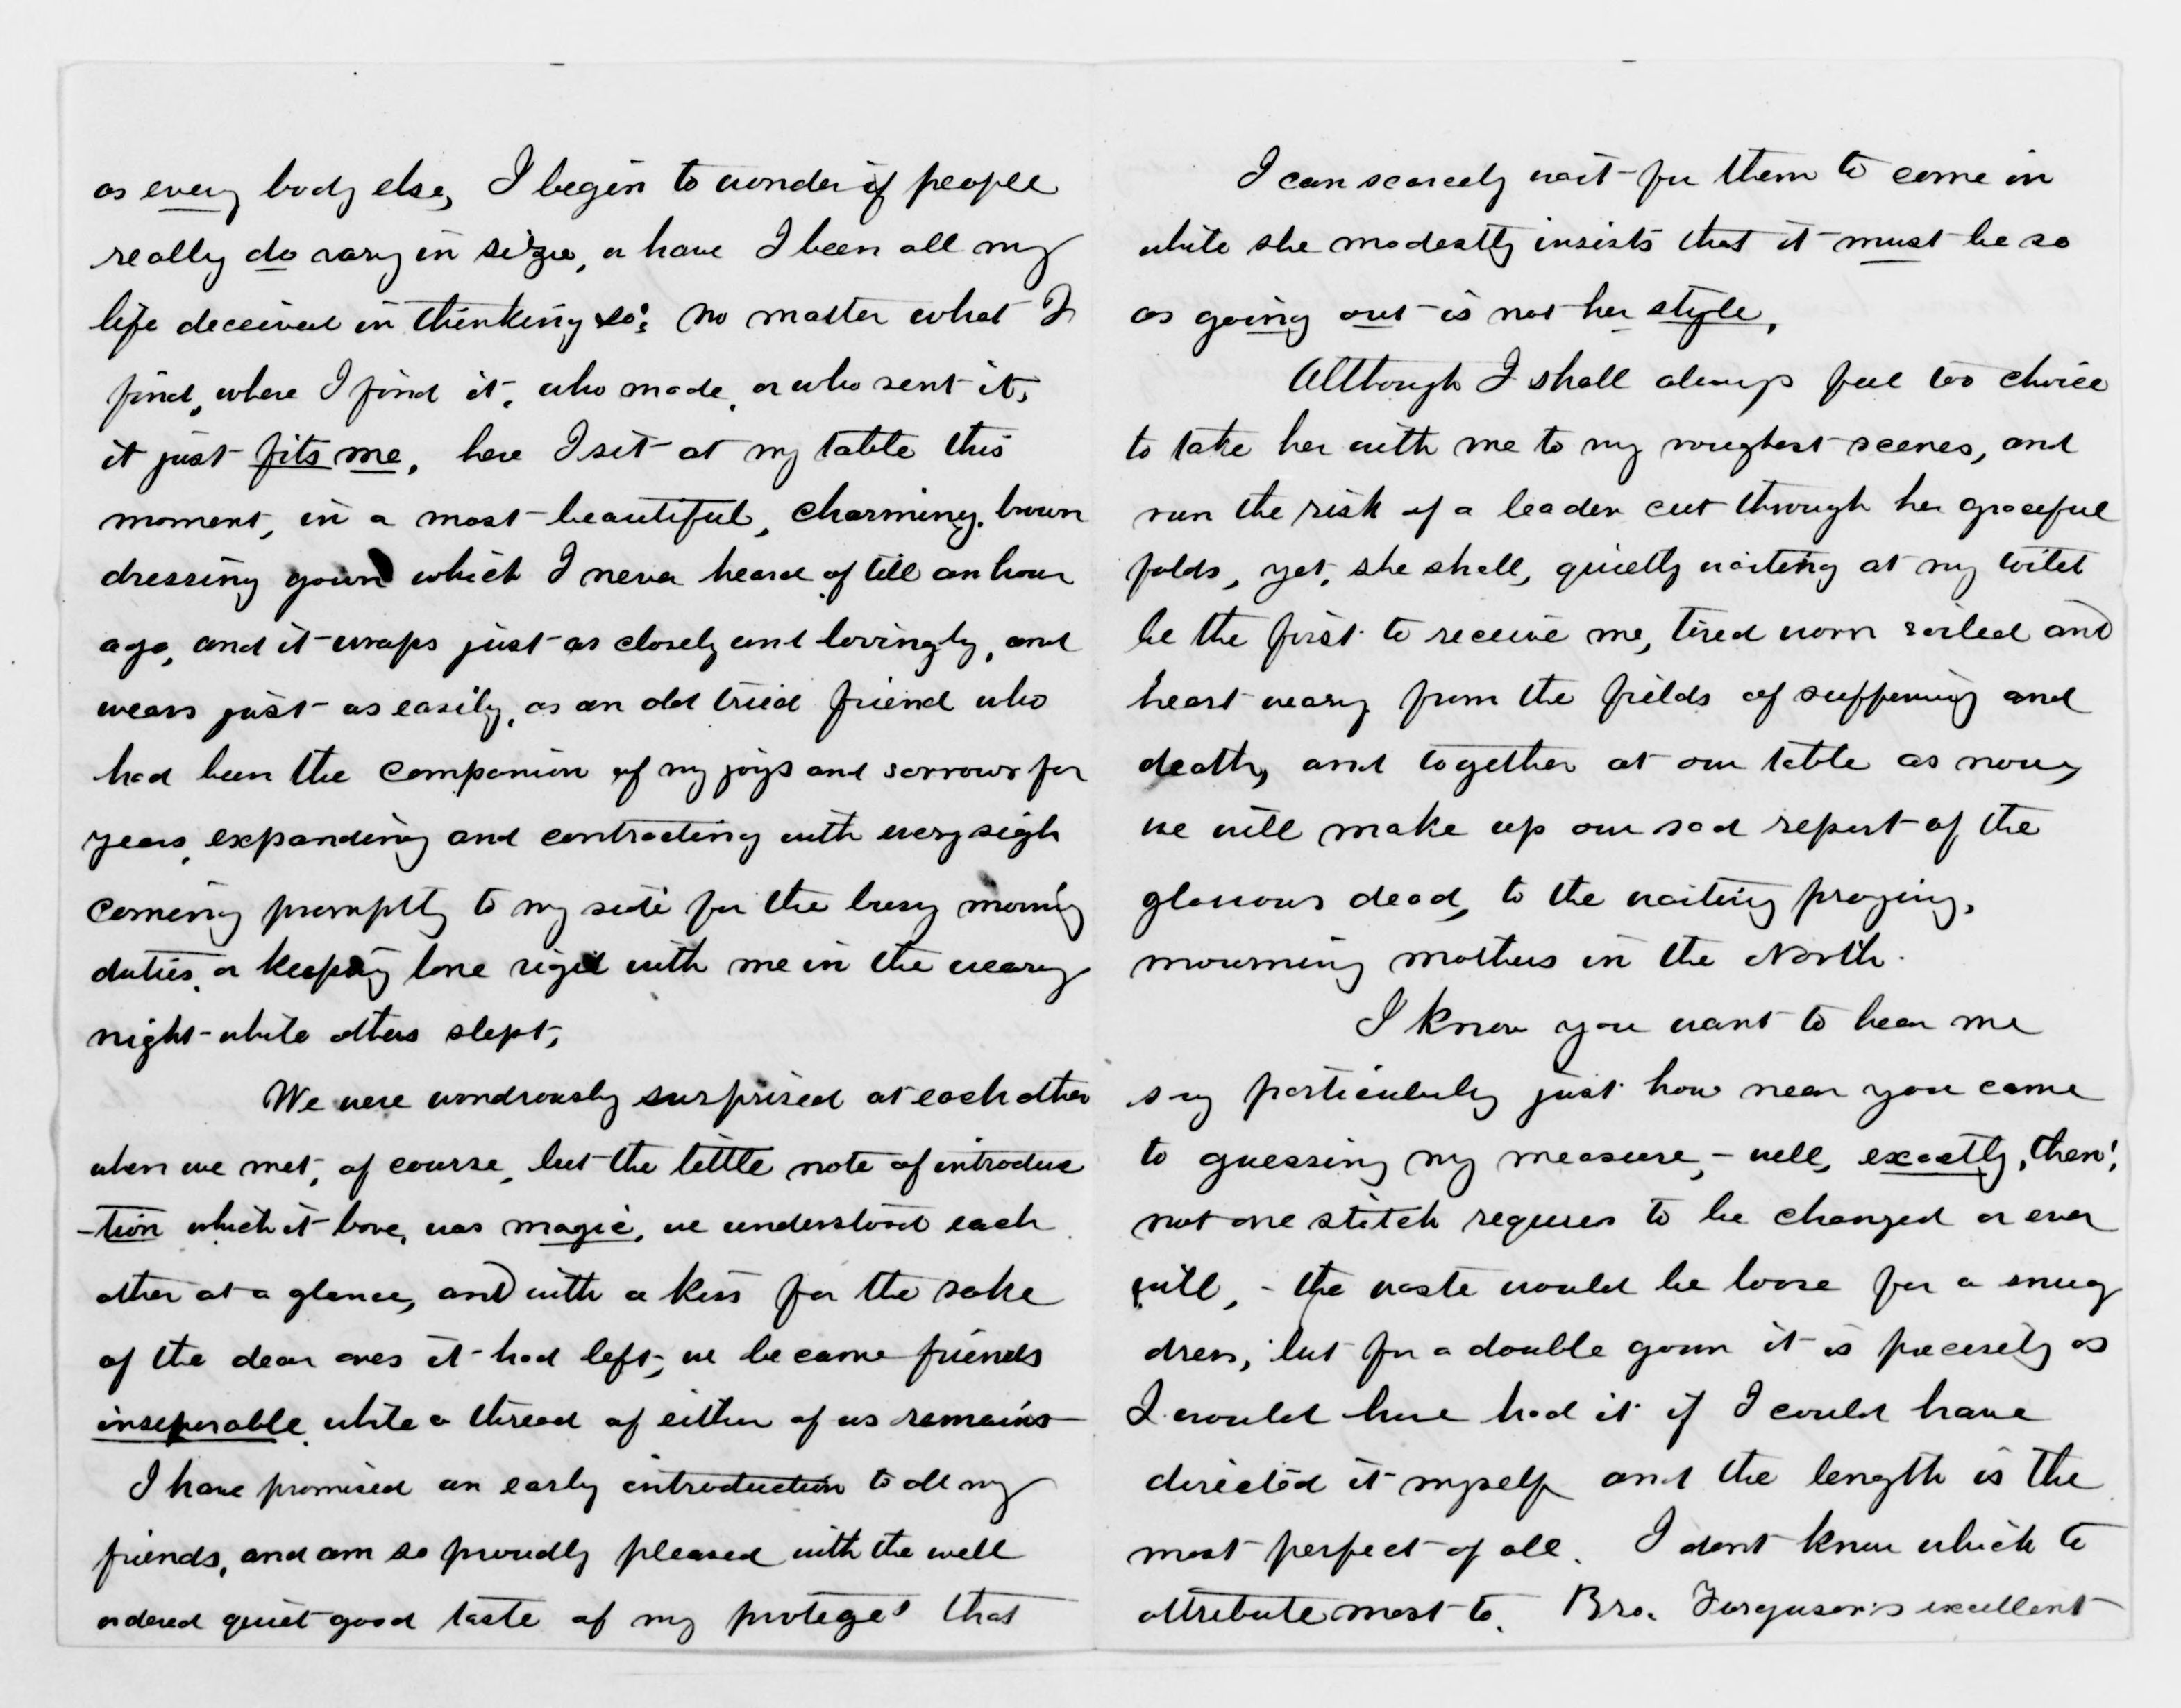 as every body else, I begin to wonder if people
really do vary in size, or have I been all my
life deceived in thinking so; no matter what I
find, where I find it, who made, or who sent it,
it just fits me, here I sit at my table this
moment, in a most beautiful, charming, brown
dressing gown which I never heard of till an hour
ago, and it wraps just as closely and lovingly, and
wears just as easily, as an old tried friend who
had been the companion of my joys and sorrows for
years, expanding and contracting with every sigh
coming promptly to my side for the busy morning
duties, or keeping lone vigil with me in the weary
night while others slept,
We were wondrously surprised at each other
when we met, of course, but the little note of introduc
-tion which it bore, was magic, we understood each
other at a glance, and with a kiss for the sake
of the dear ones it had left, we became friends
inseperable while a thread of either of us remains
I have promised an early introduction to all my
friends, and am so proudly pleased with the well
ordered quiet good taste of my protege' that
I can scarcely wait for them to come in
while she modestly insists that it must be so
as going out is not her style,
Although I shall always feel too choice
to take her with me to my roughest scenes, and
run the risk of a leaden cut through her graceful
folds, yet, she shall, quietly waiting at my toilet
be the first to receive me, tired worn soiled and
heart weary from the fields of suffering and
death, and together at our table as now,
we will make up our sad report of the
glorious dead, to the waiting praying,
mourning mothers in the North.
I know you want to hear me
say particularly just how near you came
to guessing my measure, - well, exactly, then!
not one stitch requires to be changed or ever
will, - the waste would be loose for a snug
dress, but for a double gown it is precisely as
I would have had it if I could have
directed it myself and the length is the
most perfect of all. I dont know which to
attribute most to, Bro. Ferguson's excellent